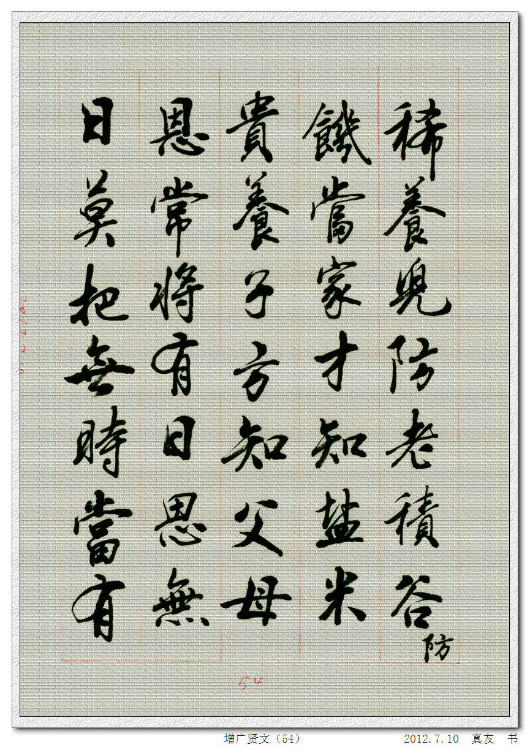 稀養兒防老積谷防
饑當家才知盐米
貴養子方知父母
恩常將有日思無
日莫把無時當有
54
增广贤文（54）
2012.7.10 真友 书